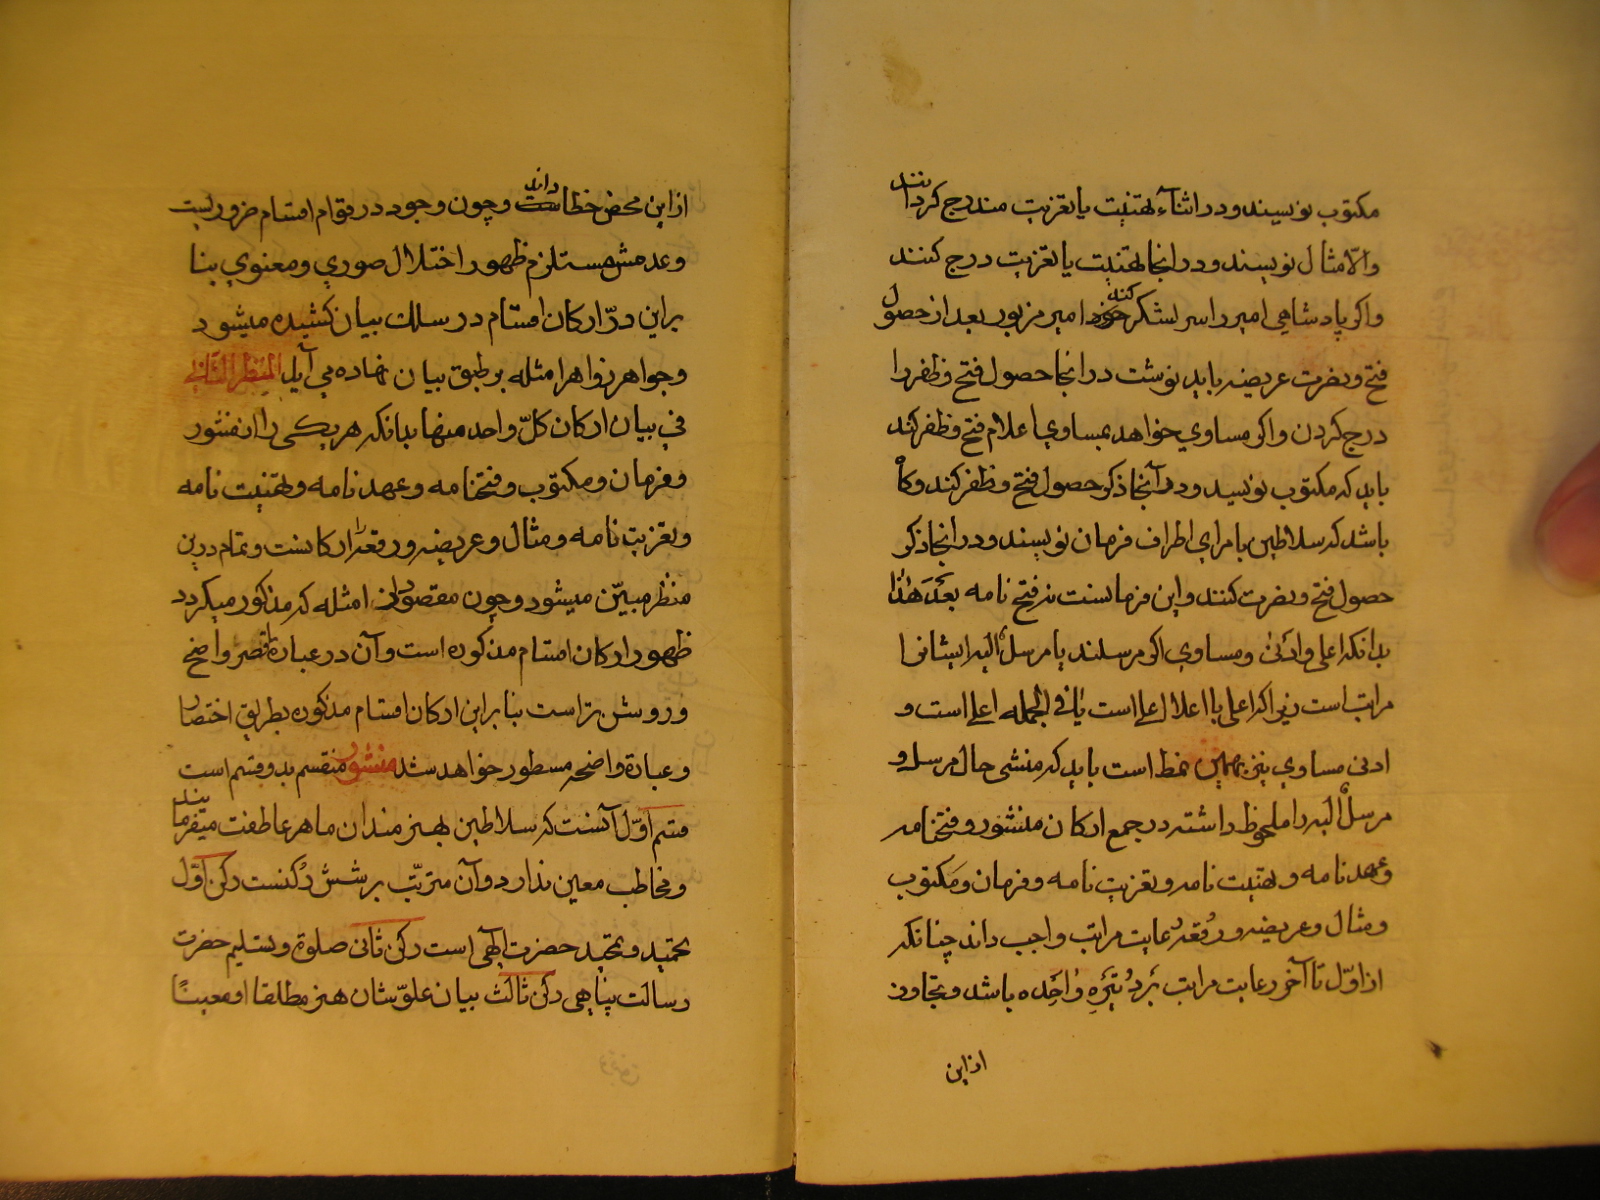 مکتوب نویسند و در اثناء تهنیت یا تعزیت مندرج گردانند
والا مثال نویسند و در انجا تهنیت یا تعزیت درج کنند
و اگر پادشاهی امیر را سر لشکر خود کند امیر مزبور بعد از حصول
فتح و نصرت عریضه باید نوشت در انجا حصول فتح و ظفر را
درج کردن و اگر مساوی خواهد بمساوی اعلام فتح و ظفر کند
باید که مکتوب نویسد و در آنجا ذکر حصول فتح و ظفر کند و گاه
باشد که سلاطین بامرای اطراف فرمان نویسند و در انجا ذکر
حصول فتح و نصرت کنند و این فرمانست نه فتح نامه بعد هذا
بدانکه اعلی و ادنی و مساوی اگر مرسلند یا مرسل الیه ایشانرا
مراتب است زیراکه اعلی یا اعلا الاعلی است یا فی الجمله اعلی است و
ادنی مساوی نیز بهمین نمط است باید که منشی حال مرسل و
مرسل الیه را ملحوظ داشته در جمع ارکان منشور و فتحنامه
و عهدنامه و تهنیت نامه و تعزیت نامه و فرمان و مکتوب
و مثال و عریضه و رقعه رعایت مراتب واجب داند چنانکه
از اول تا آخر رعایت مراتب بر وتیره واحده باشد و تجاوز
از این
از این محض خطا داند و چون وجود در قوام اقسام ضروریست
و عدمش مستلزم ظهور اختلال صوری و معنوی بنا
بر این درّ ارکان اقسام در سلک بیان کشیده میشود
و جواهر زواهر امثله بر طبق بیان نهاده می آید المنظر الثانی
فی بیان ارکان کلّ واحد منها بدانکه هر یکی را از منشور
و فرمان و مکتوب و فتحنامه و عهدنامه و تهنیت نامه
و تعزیت نامه و مثال و عریضه و رقعه را ارکانست و تمام درین
منظر مبیّن میشود و چون مقصود از امثله که مذکور میگردد
ظهور ارکان اقسام مذکوره است و آن در عبارة اقصر واضح
و روشن تر است بنا بر این ارکان اقسام مذکوره بطریق اختصار
و عبارة واضحه مسطور خواهد شد منشور منقسم بدو قسم است
قسم اوّل آنست که سلاطین بهنرمندان ماهر عاطفت میفرمایند
و مخاطب معین ندارد و آن مترتّب بر شش رُکنست رکن اوّل
تحمید و تمجید حضرت الهی است رکن ثانی صلوة و تسلیم حضرت
رسالت پناهی رکن ثالث بیان علوّ شان هنر مطلقا او معینًا